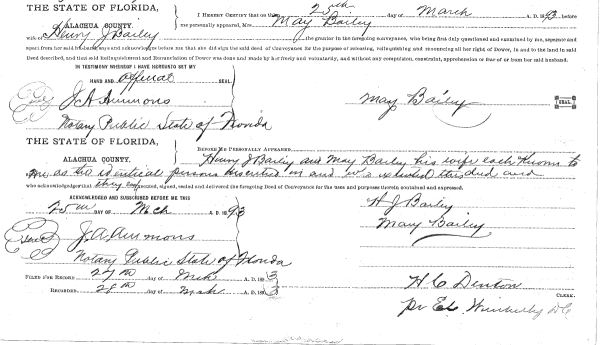 THE STATE OF FLORIDA,
ALACHUA COUNTY.
I HEREBY CERTIFY that on this 25th day of March A. D. 1893, before
me personally appeared, Mrs. May Bailey
wife of Henry J Bailey the grantor in the foregoing conveyance, who being first duly questioned and examined by me, separate and
apart from her said husband, and acknowledges before me that she did sign the said deed of Conveyance for the purpose of releasing, relinquishing and renouncing all her right of Dower, in and to the land in said
Deed described, and that said Relinquishment and Renunciation of Dower was done and made by her freely and voluntarily, and without any compulsion, constraint, apprehension or fear of or from her said husband.
IN TESTIMONY WHEREOF I HAVE HEREUNTO SET MY
HAND AND official SEAL.
J. A. Ammons
Notary Public State of Florida
May Bailey SEAL.
THE STATE OF FLORIDA,
ALACHUA COUNTY.
BEFORE ME PERSONALLY APPEARED,
Henry J Bailey and May Bailey his wife each known to
me as the identical persons described in and who executed this deed and
who acknowledges that they executed, signed, sealed and delivered the foregoing Deed of Conveyance for the uses and purposes therein contained and expressed.
ACKNOWLEDGED AND SUBSCRIBED BEFORE ME THIS
25th DAY OF Mch A. D. 1893
H J Bailey
May Bailey
J. A. Ammons
Notary Public State of Florida
FILED FOR RECORD 27th day of Mch A. D. 1893
RECORDED 28th day of Mch A. D. 1893
H C Denton CLERK.
pr Ed Wimberly D C